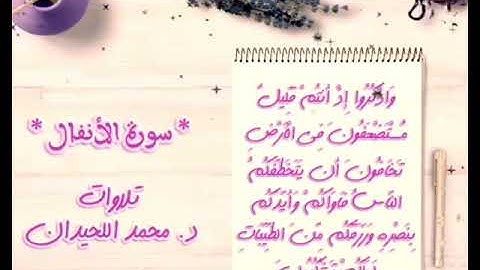 *سورة الأنفال*
تلاوات
د. محمد اللحيدان
وَاذْكُرُوا إِذْ أَنتُمْ قَلِيلٌ
مُّسْتَضْعَفُونَ فِي الْأَرْضِ
تَخَافُونَ أَن يَتَخَطَّفَكُمُ
النَّاسُ فَآوَاكُمْ وَأَيَّدَكُم
بِنَصْرِهِ وَرَزَقَكُم مِّنَ الطَّيِّبَاتِ
لَعَلَّكُمْ تَشْكُرُونَ